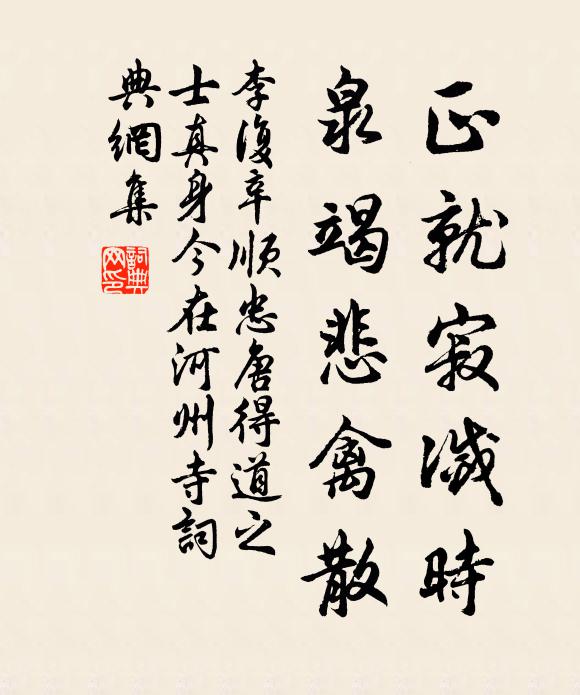 正就寂滅時
泉竭悲禽散
李復卒順忠唐得道之
士真身今在河州寺詞
典網集
詞典
网印